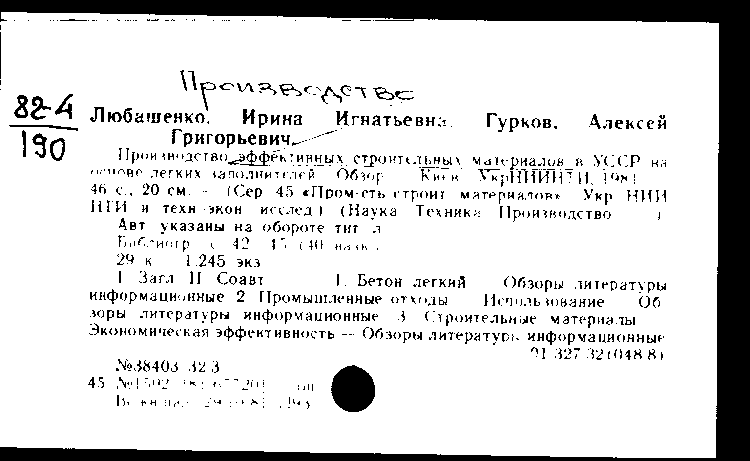 Производство
82-4
190
Любашенко, Ирина Игнатьевна, Гурков, Алексей
Григорьевич.
Производство эффективных строительных материалов в УССР на
основе легких заполнителей Обзор Киев УкрНИИНТИ, 1981
46 с., 20 см. - (Сер 45 «Пром-сть строит материалов» Укр НИИ
НТИ и техн -экон исслед) (Наука Техника Производство )
Авт указаны на обороте тит л
Библиогр с 42 (40 назв.
29 к 1.245 экз
I Загл II Соавт 1. Бетон легкий Обзоры литературы
информационные 2 Промышленные отходы Использование Об
зоры литературы информационные 3 Строительные материалы
Экономическая эффективность — Обзоры литературы информационные
327 32 (048 8)
№38403 32 3
45